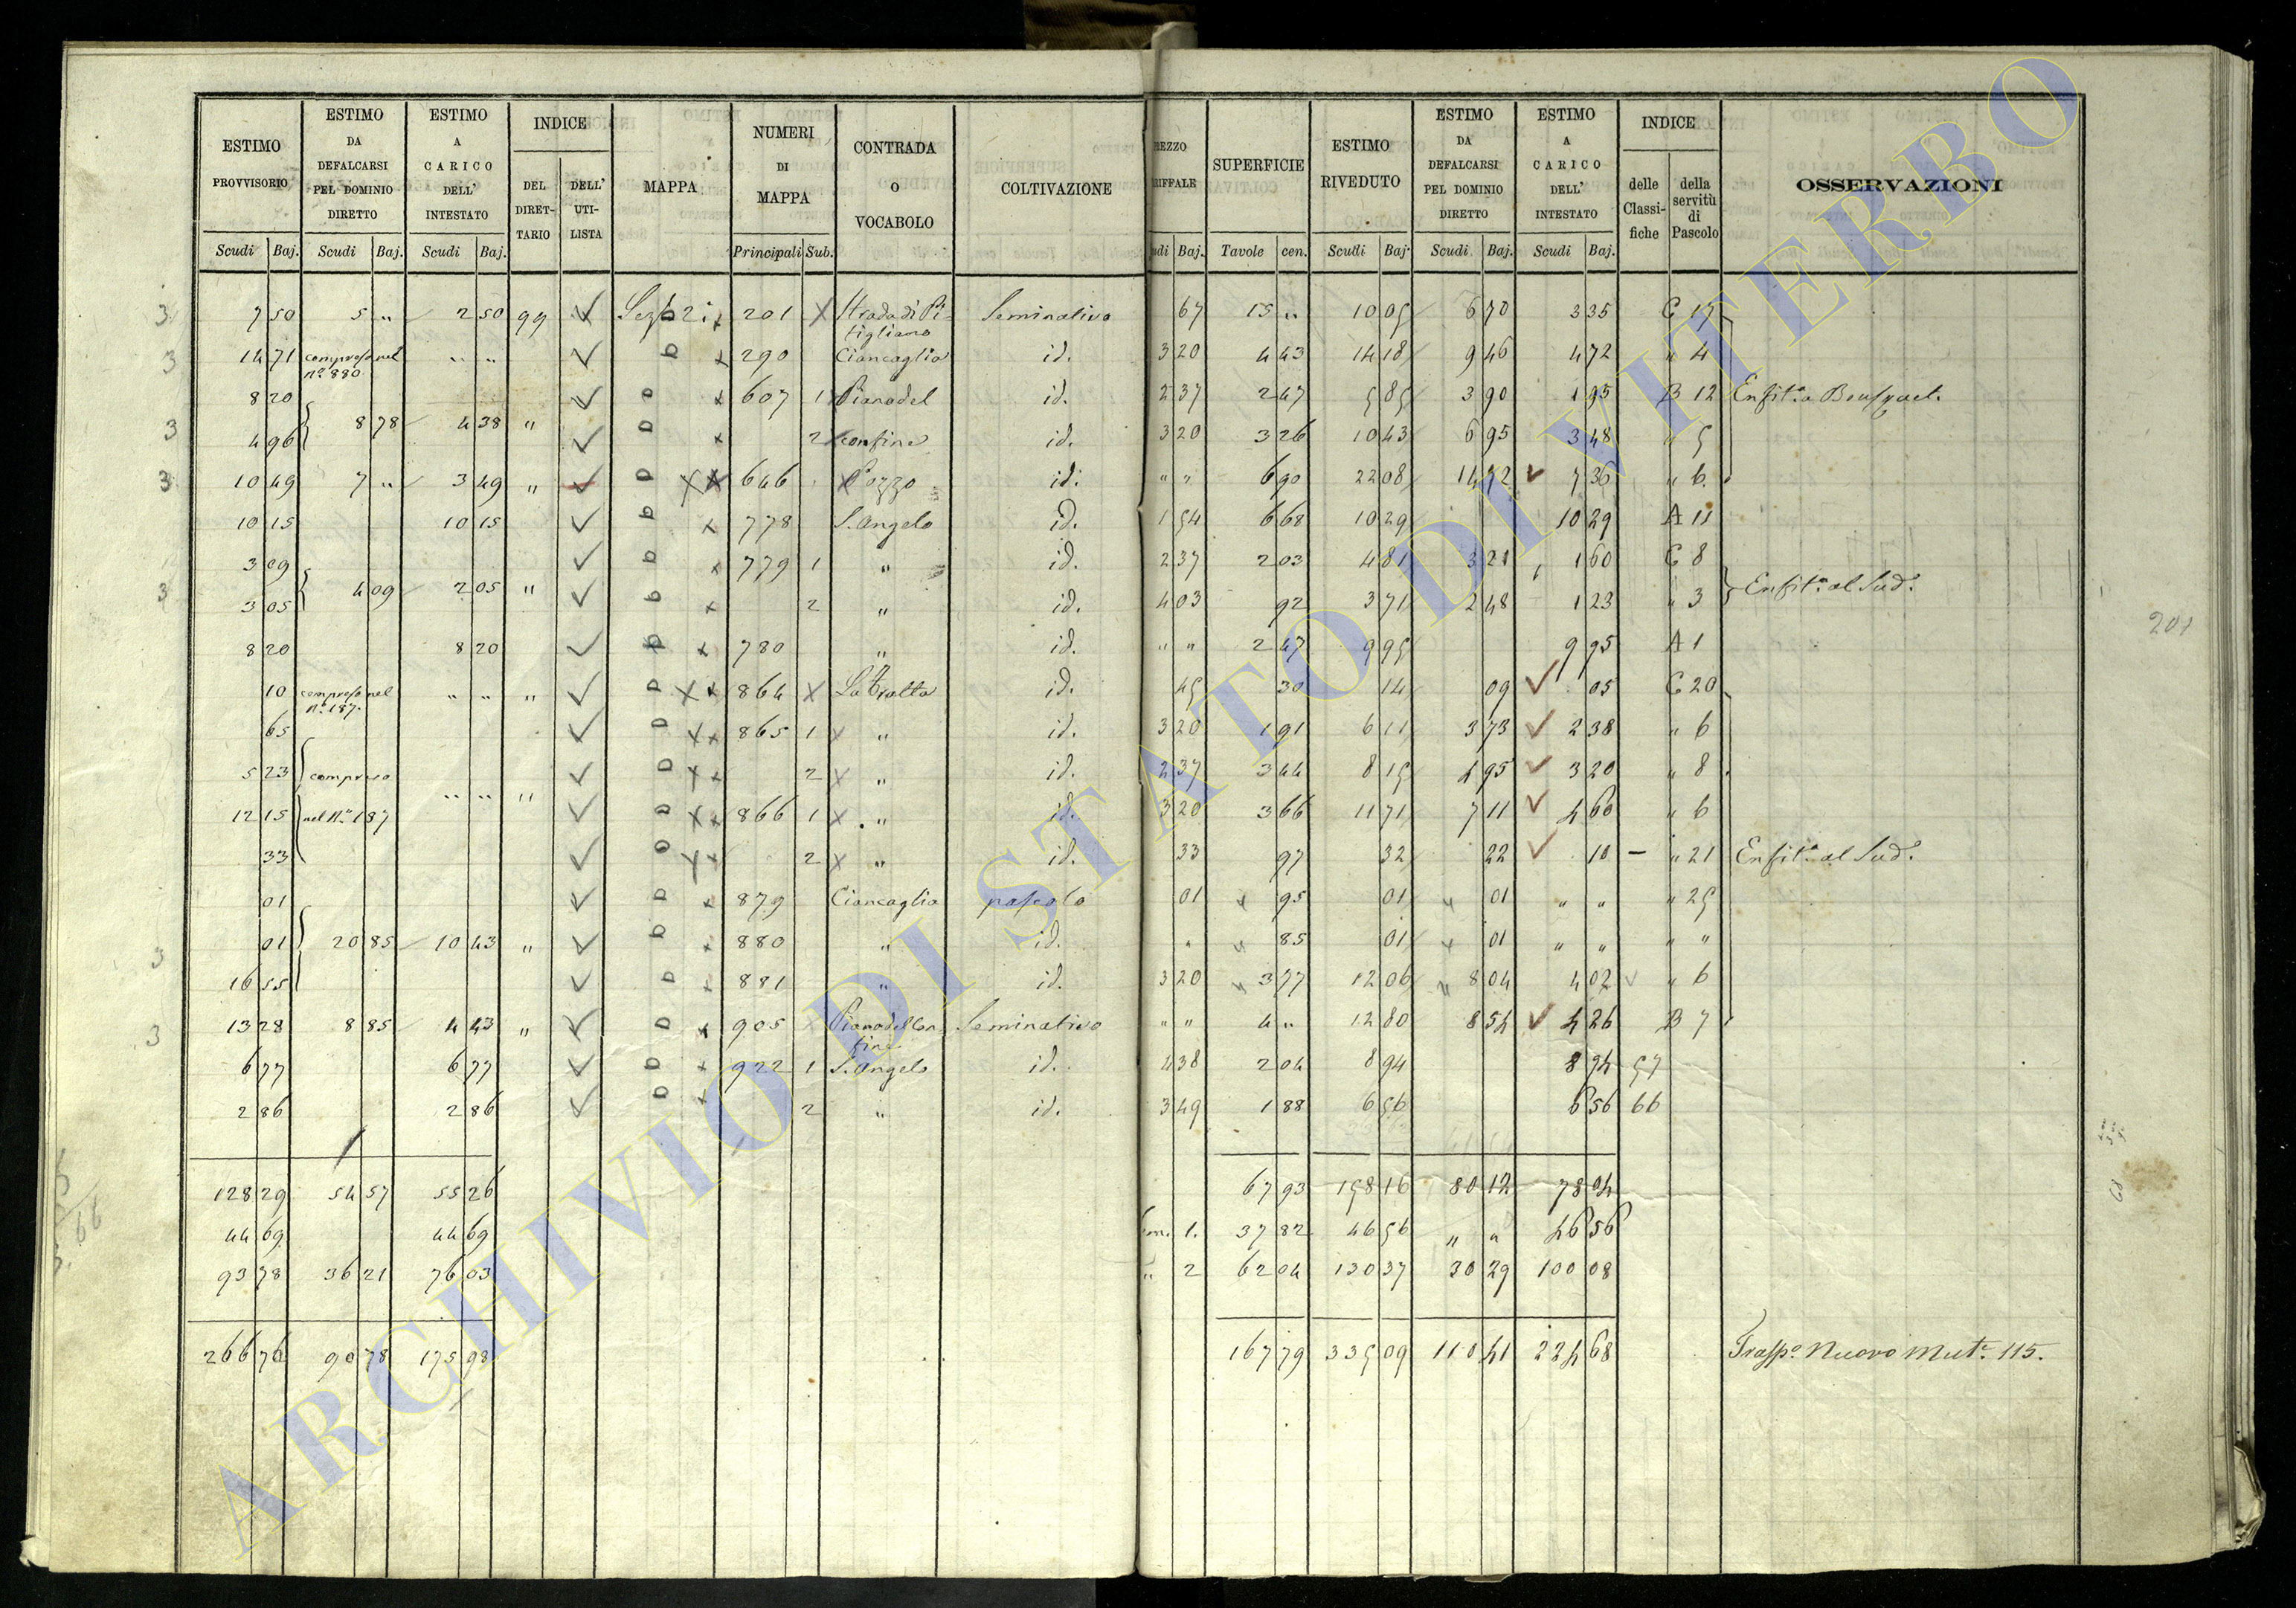 ESTIMO PROVVISORIO | ESTIMO DA DEFALCARSI PEL DOMINIO DIRETTO | ESTIMO A CARICO DELL' INTESTATO | INDICE | MAPPA | NUMERI DI MAPPA | CONTRADA O VOCABOLO | COLTIVAZIONE | REZZO RIFFALE | SUPERFICIE | ESTIMO RIVEDUTO | ESTIMO DA DEFALCARSI PEL DOMINIO DIRETTO | ESTIMO A CARICO DELL' INTESTATO | INDICE | OSSERVAZIONI
DEL DIRETTARIO | DELL' UTILISTA | delle Classifiche | della servitù di Pascolo
Scudi | Baj. | Scudi | Baj. | Scudi | Baj. | Principali | Sub. | udi | Baj. | Tavole | cen. | Scudi | Baj. | Scudi | Baj. | Scudi | Baj.
3 7 50 5 " 2 50 99 201 Strada di Pitigliano Seminativo 67 15 " 10 05 6 70 3 35 C 17
3 14 71 compreso nel N.º 880 " " 290 Ciancaglia id. 3 20 4 43 14 18 9 46 4 72 " 4
8 20 607 1 Piano del id. 2 37 2 47 5 85 3 90 1 95 B 12
3 4 96 8 78 4 38 " 2 confine id. 3 20 3 26 10 43 6 95 3 48 " 5
3 10 49 7 " 3 49 " 646 Pozzo id. " " 6 90 22 08 14 72 7 36 " 6.
10 15 10 15 778 S. Angelo id. 1 54 6 68 10 29 10 29 A 11
3 09 779 1 " id. 2 37 2 03 4 81 3 21 1 60 C 8
3 3 05 4 09 2 05 " 2 " id. 4 03 92 3 71 2 48 1 23 " 3 Enfit.ª al Sud.º
8 20 8 20 780 " id. " " 2 47 9 95 9 95 A 1
10 compreso nel N.º 187. " " " 864 id. 45 30 14 09 05 C 20
65 865 1 " id. 3 20 1 91 6 11 3 73 2 38 " 6
5 23 compreso 2 " id. 2 37 3 44 8 15 4 95 3 20 " 8
12 15 nel N.º 187 " " " 866 1 " id. 3 20 3 66 11 71 7 11 4 60 " 6
33 2 " id. 33 97 32 22 10 — " 21 Enfit.ª al Sud.º
01 879 Ciancaglia pascolo 01 95 01 01 " " " 25
3 01 20 85 10 43 " 880 " id. " 85 01 01 " " " "
16 55 881 " id. 3 20 3 77 12 06 8 04 4 02 " 6
3 13 28 8 85 4 43 " 905 Piano del Confine Seminativo " " 4 " 12 80 8 54 4 26 B 7
6 77 6 77 922 1 S. Angelo id. 4 38 2 04 8 94 8 94 57
2 86 2 86 2 " id. 3 49 1 88 6 56 6 56 66
128 29 54 57 55 26 67 93 158 16 80 12 78 04
44 69 44 69 1. 37 82 46 56 " " 46 56
93 78 36 21 76 03 " 2 62 04 130 37 30 29 100 08
266 76 90 78 175 98 167 79 335 09 110 41 224 68 Trasp.º Nuovo Mut.e 115.
201
68
66
ARCHIVIO DI STATO DI VITERBO